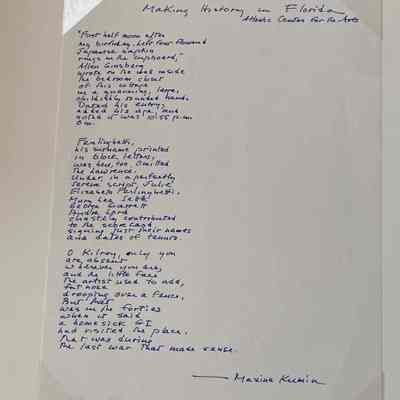 Making History in Florida
Atlantic Center for the Arts
"First half moon after
my birthday, left four flowered
Japanese napkin
rings in the cupboard,"
Allen Ginsberg
wrote on the wall inside
the bedroom closet
of this cottage
in a quavering, large,
childishly rounded hand.
Dated his entry,
added his age, and
noted it was 11:55 p.m.
Om.
Ferlinghetti,
his surname printed
in block letters,
was here, too. Omitted
the Lawrence.
Under, in a perfectly
serene script, Julie
Elizabeth Ferlinghetti.
George Garrett
chastely contributed
to the scorecard,
signing just their names
and dates of tenure.
O Kilroy, only you
are absent
wherever you are,
and the little face
the artist used to add,
fat nose
drooping over a fence.
But that
was in the forties
when it said
a homesick GI
had visited the place.
That was during
the last war that made sense.
— Maxine Kumin